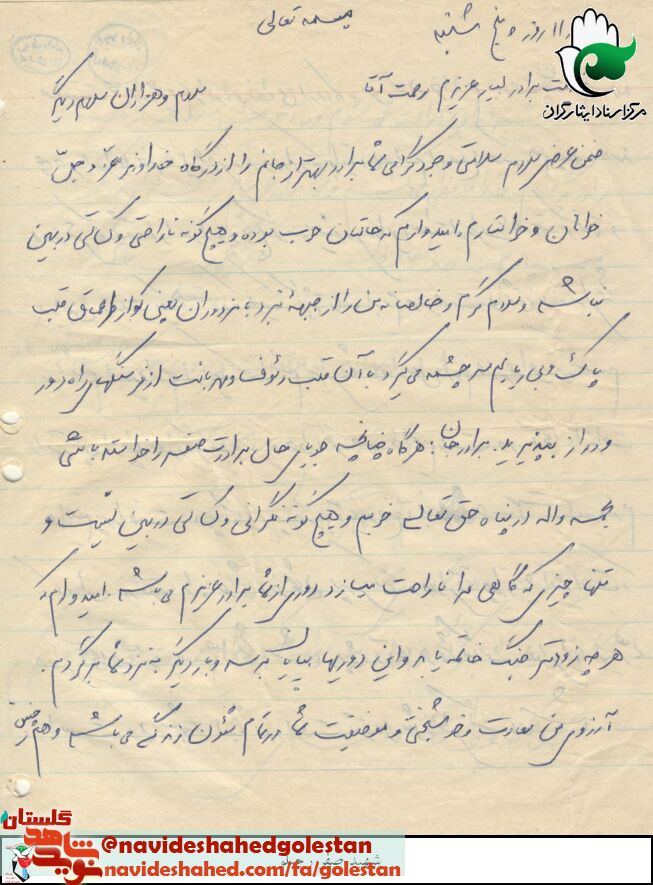 بسمه تعالی
۱۱ روز پنج شنبه
مرکز اسناد ایثارگران
برادر عزیزم رحمت آقا سلام و هزاران سلام دیگر
ضمن عرض سلام سلامتی وجود گرامی شما برادر بهتر از جانم را از درگاه خداوند عزّ و جلّ
خواهان و خواستارم امیدوارم که حالتان خوب بوده و هیچ گونه ناراحتی و کسالتی در بین
نباشد و سلام گرم و خالصانه من را از جبهه نبرد با مزدوران بعثی که از اعماق قلب
پاک و بی ریایم سرچشمه می گیرد با آن قلب رئوف و مهربانت از فرسنگهای راه دور
و دراز بپذیرید. برادر جان: هرگاه چنانچه جویای حال برادرت صفر را خواسته باشی
بحمد واله در پناه حق تعالی خوبم و هیچ گونه نگرانی و کسالتی در بین نیست و
تنها چیزی که گاهی مرا ناراحت میسازد دوری از شما برادر عزیزم می باشد. امیدوارم که
هر چه زودتر جنگ خاتمه یابد و این دوریها بپایان برسد و بار دیگر به نزد شما برگردم.
آرزوی من سعادت و خوشبختی و موفقیت شما در تمام شئون زندگی می باشد و هم چنین
گلستان
نوید شاهد
@navideshahedgolestan
navideshahed.com/fa/golestan
شهید صفر